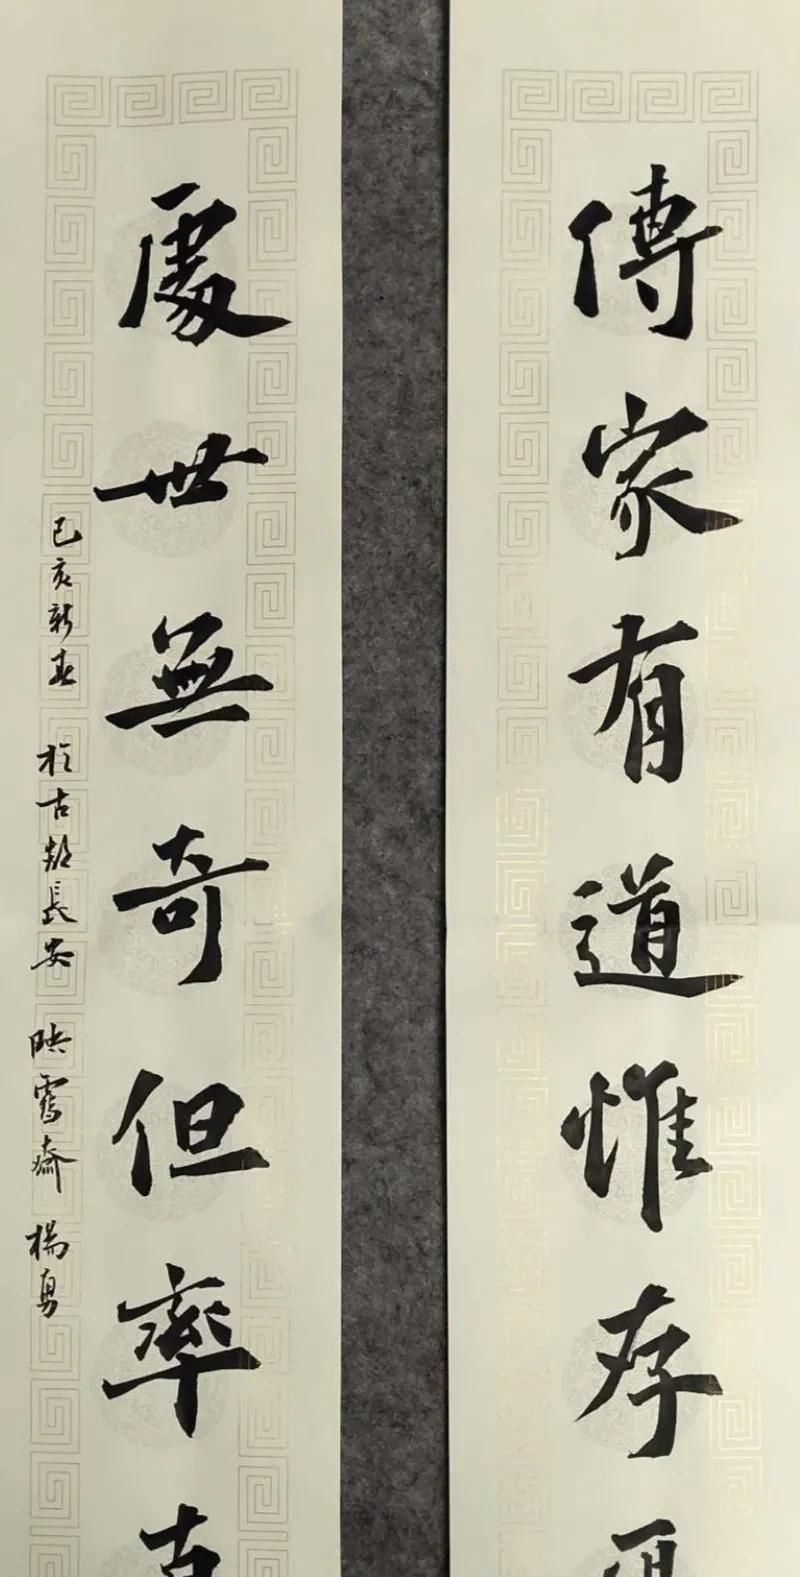 傳家有道惟存
處世無奇但率
己亥新春 於古都長安 映雪齋 楊勇